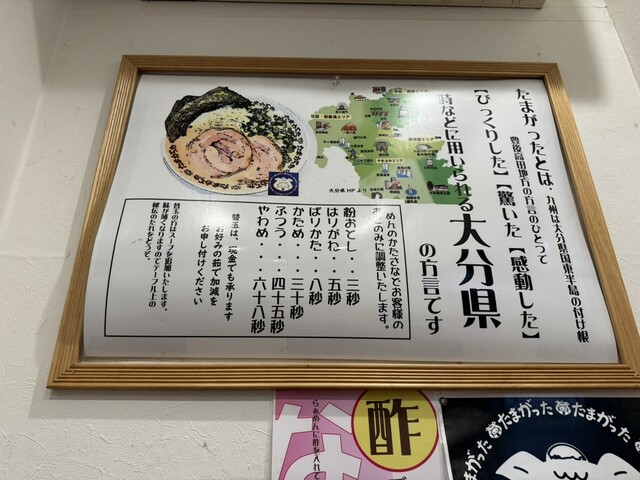 たまがったとは、九州は大分県国東半島の付け根
豊後高田地方の方言のひとつで
【びっくりした】【驚いた】【感動した】
時などに用いられる大分県の方言です
大分県HPより
めんのかたさなどお客様の
お好みに調整いたします。
粉おとし・・三秒
はりがね・・五秒
ばりかた・・八秒
かため・・・三十秒
ふつう・・・四十五秒
やわめ・・・六十八秒
替玉は、現金でも承ります
お好みの茹で加減を
お申し付けください
替玉の方はスープを追加いたします。
味が薄くなりますのでテーブル上の
秘伝のたれをどうぞ。
酢
らぁめんに酢を入れて
たまがった たまがった たまがった